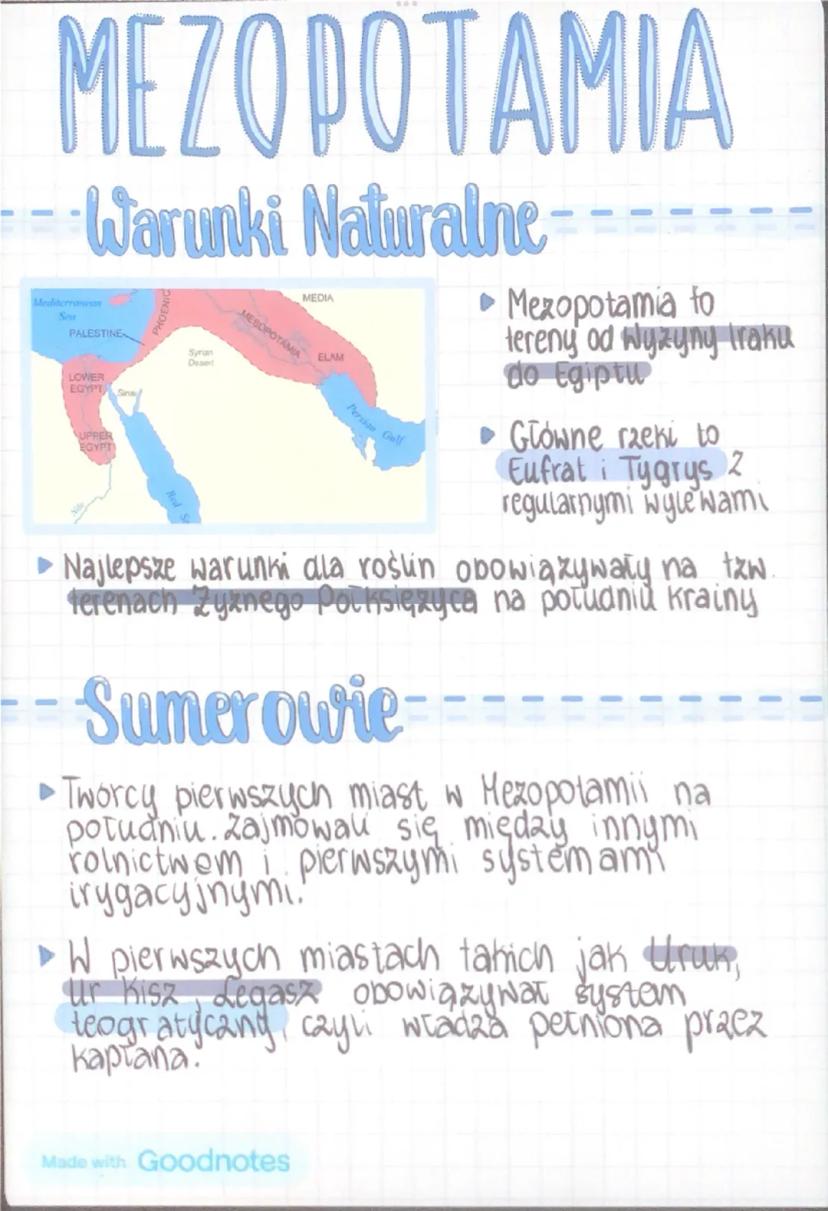 MEZOPOTAMIA
Warunki Naturalne
Mediterranean
Sea
PHOENIC
MEDIA
PALESTINE
MESOPOTAMIA
Syrian
Desert
ELAM
LOWER
EGYPT
Sinai
Persian Gulf
UPPER
EGYPT
Nile
Red Se
Mezopotamia to
tereny od Wyżyny Iraku
do Egiptu
Główne rzeki to
Eufrat i Tygrys z
regularnymi wylewami
Najlepsze warunki dla roślin obowiązywały na tzw.
terenach Żyznego Półksiężyca na południu krainy
Sumerowie
Twórcy pierwszych miast w Mezopotamii na
południu. Zajmowali się między innymi
rolnictwem i pierwszymi systemami
irygacyjnymi.
W pierwszych miastach takich jak Uruk,
Ur Kisz, Legasz obowiązywał system
teogratyczny, czyli władza pełniona przez
kapłana.
Made with Goodnotes